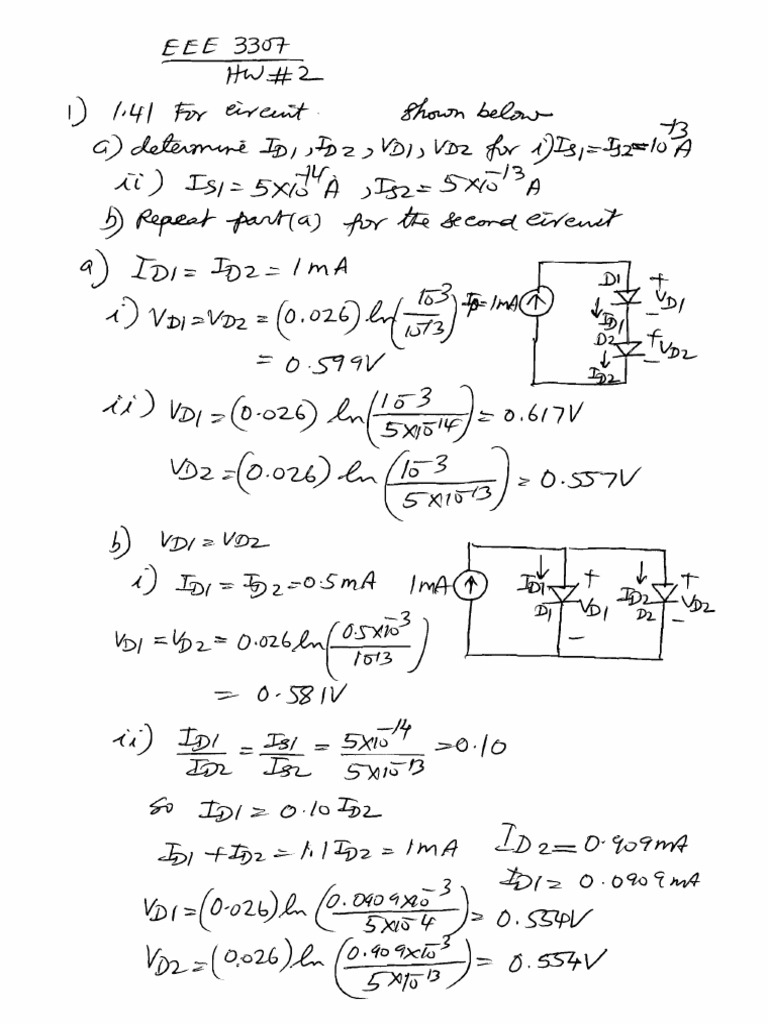 EEE 3307
HW#2
1) 1.41 For circuit shown below
a) determine ID1, ID2, VD1, VD2 for i) IS1 = IS2 = 10^-13 A
ii) IS1 = 5×10^-14 A, IS2 = 5×10^-13 A
b) Repeat part(a) for the second circuit
a) ID1 = ID2 = 1mA
i) VD1 = VD2 = (0.026) ln(10^-3/10^-13)
= 0.599V
ID = 1mA
D1
+
VD1
-
ID1
D2
+
VD2
-
ID2
ii) VD1 = (0.026) ln(10^-3/5×10^-14) = 0.617V
VD2 = (0.026) ln(10^-3/5×10^-13) = 0.557V
b) VD1 = VD2
i) ID1 = ID2 = 0.5mA
1mA
ID1
D1
+
VD1
-
ID2
D2
+
VD2
-
VD1 = VD2 = 0.026 ln(0.5×10^-3/10^13)
= 0.581V
ii) ID1/ID2 = IS1/IS2 = 5×10^-14/5×10^-13 = 0.10
So ID1 = 0.10 ID2
ID1 + ID2 = 1.1 ID2 = 1mA
ID2 = 0.909mA
ID1 = 0.0909mA
VD1 = (0.026) ln(0.0909×10^-3/5×10^-4) = 0.554V
VD2 = (0.026) ln(0.909×10^-3/5×10^-13) = 0.554V